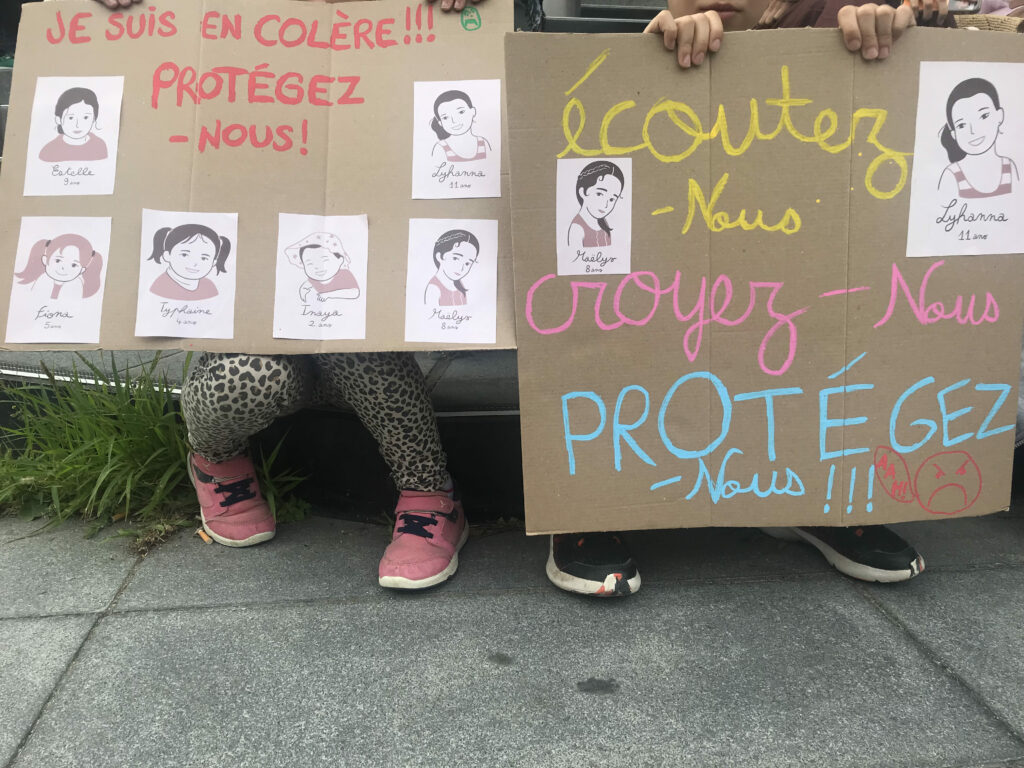 JE SUIS EN COLÈRE!!!
PROTÉGEZ
-NOUS!
Estelle
9 ans
Lyhanna
11 ans
Fiona
5 ans
Typhaine
4 ans
Inaya
2 ans
Maëlys
8 ans
écoutez
-Nous
Maëlys
8 ans
Lyhanna
11 ans
croyez-Nous
PROTÉGEZ
-Nous!!!